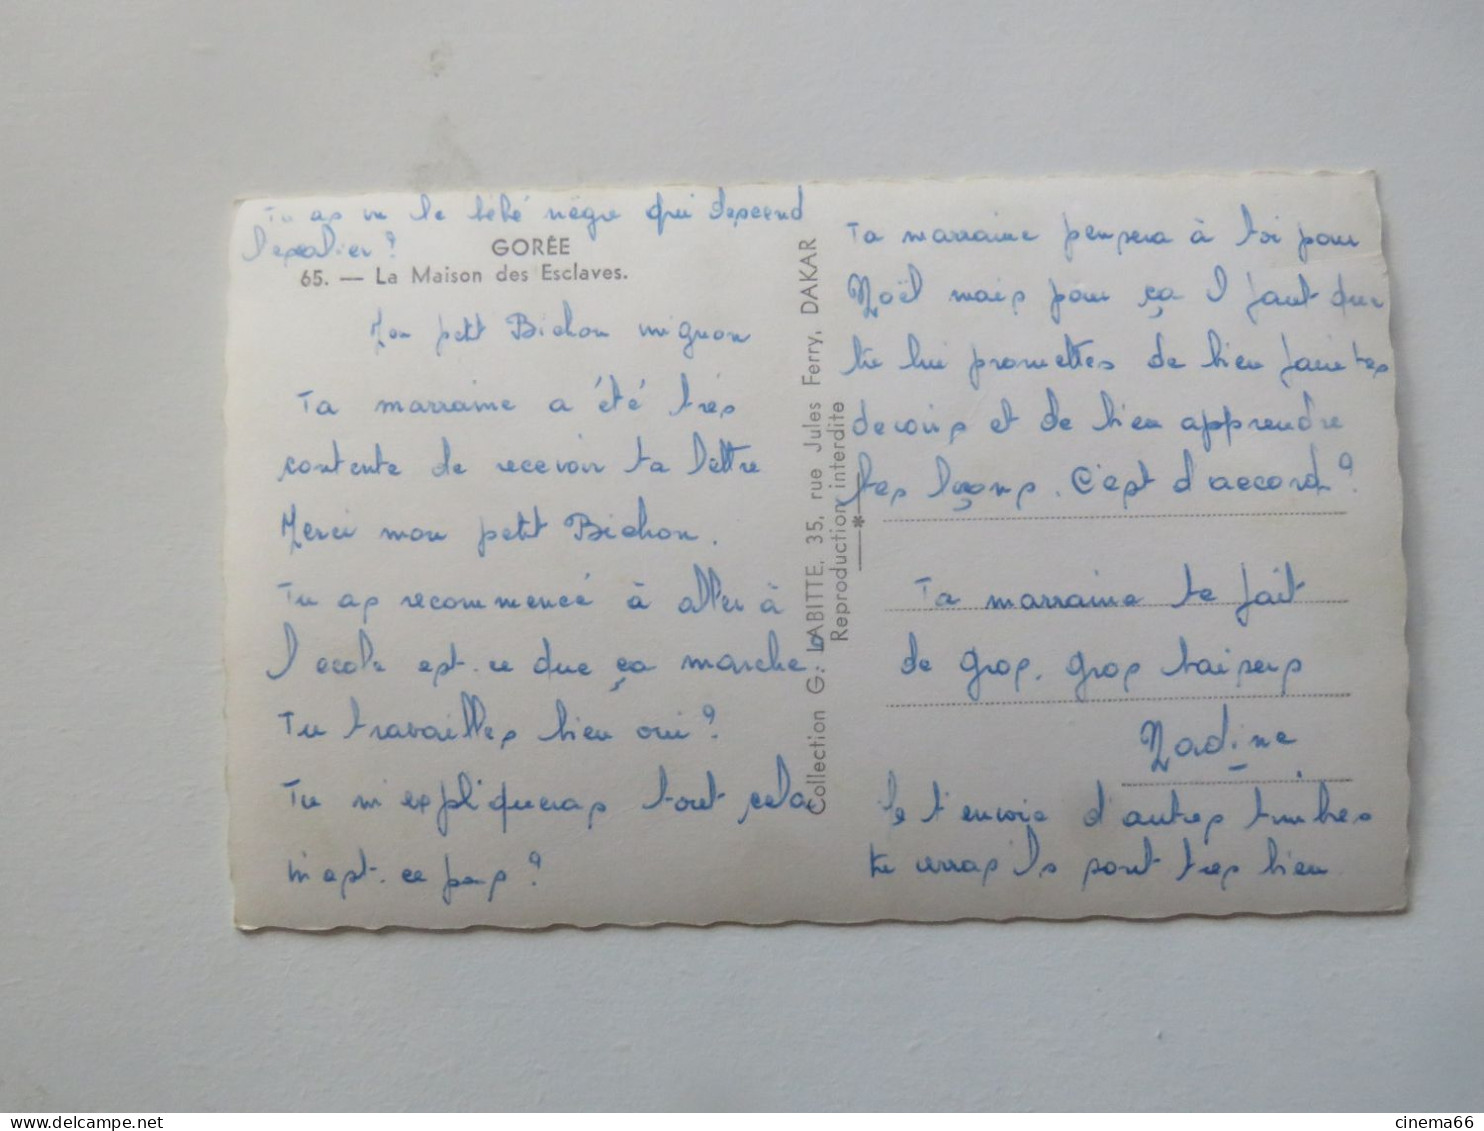 Tu as vu le bébé nègre qui descend
l'escalier?
GORÉE
65. — La Maison des Esclaves.
Mon petit Bichon mignon
Ta marraine a été très
contente de recevoir ta lettre
Merci mon petit Bichon.
Tu as recommencé à aller à
l'ecole est-ce que ça marche?
Tu travailles bien oui?
Tu m'expliqueras tout cela
n'est-ce pas?
Collection G. LABITTE, 35, rue Jules Ferry, DAKAR
Reproduction interdite
Ta marraine pensera à toi pour
Noël mais pour ça il faut que
tu lui promettes de bien faire tes
devoirs et de bien apprendre
tes leçons. C'est d'accord?
Ta marraine te fait
de gros, gros baisers
Nadine.
Je t'envoie d'autres timbres
tu verras ils sont très bien
cinema66